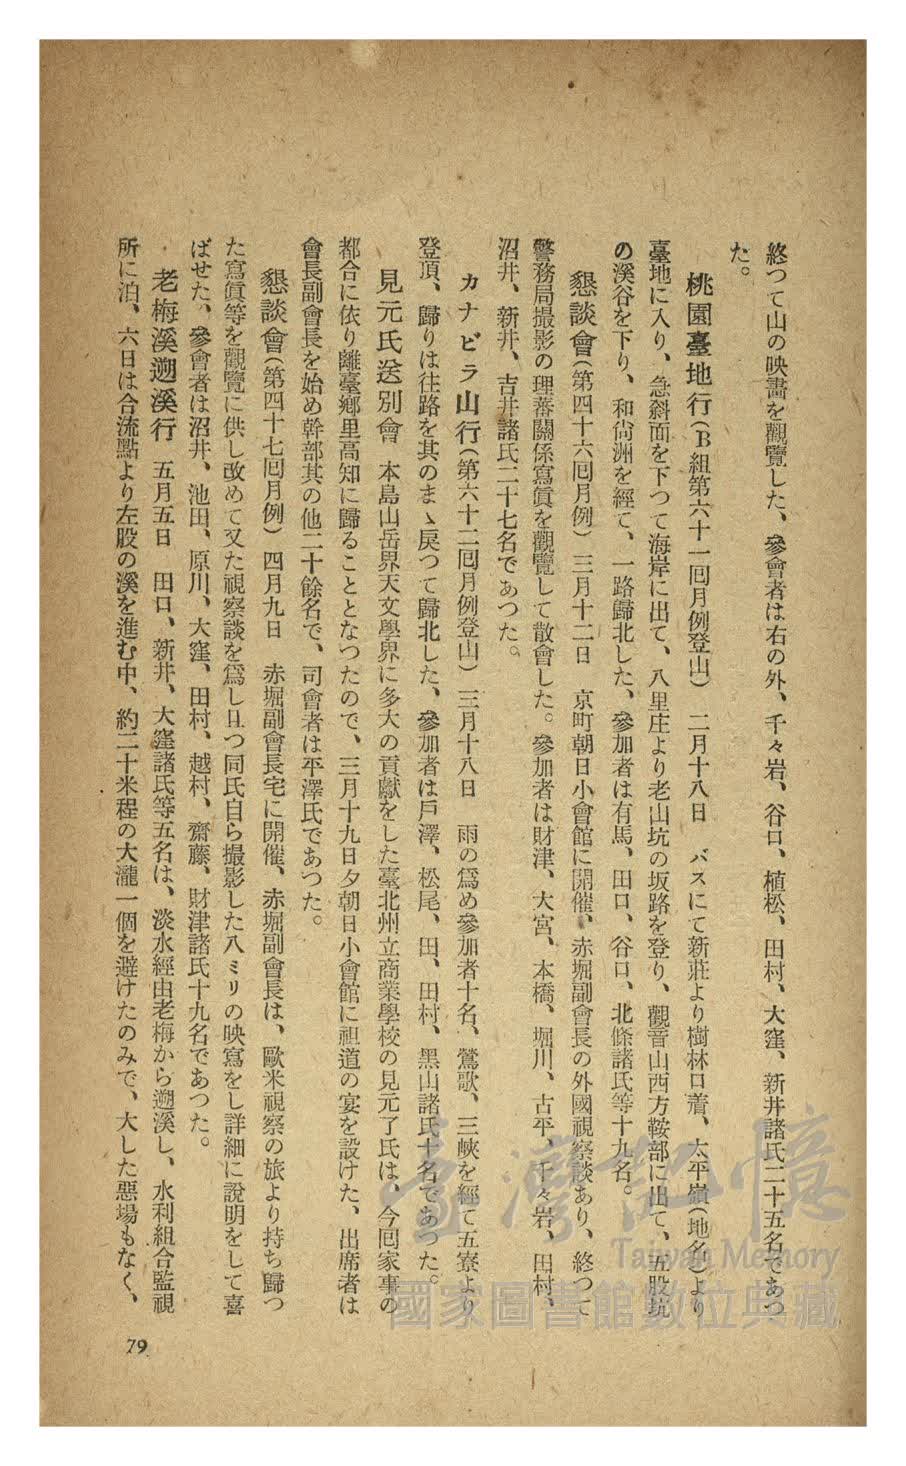 終つて山の映畵を觀覽した、參會者は右の外、千々岩、谷口、植松、田村、大窪、新井諸氏二十五名であつ
た。
桃園臺地行(B組第六十一囘月例登山) 二月十八日 バスにて新莊より樹林口着、太平嶺(地名)より
臺地に入り、急斜面を下つて海岸に出て、八里庄より老山坑の坂路を登り、觀音山西方鞍部に出て、五股坑
の溪谷を下り、和尙洲を經て、一路歸北した、參加者は有馬、田口、谷口、北條諸氏等十九名。
懇談會(第四十六囘月例) 三月十二日 京町朝日小會館に開催、赤堀副會長の外國視察談あり、終つて
警務局撮影の理蕃關係寫眞を觀覽して散會した。參加者は財津、大宮、本橋、堀川、古平、千々岩、田村、
沼井、新井、吉井諸氏二十七名であつた。
カナビラ山行(第六十二囘月例登山) 三月十八日 雨の爲め參加者十名、鶯歌、三峽を經て五寮より
登頂、歸りは往路を其のまゝ戾つて歸北した、參加者は戶澤、松尾、田、田村、黑山諸氏十名であつた。
見元氏送別會 本島山岳界天文學界に多大の貢獻をした臺北州立商業學校の見元了氏は、今囘家事の
都合に依り離臺鄕里高知に歸ることとなつたので、三月十九日夕朝日小會館に祖道の宴を設けた、出席者は
會長副會長を始め幹部其の他二十餘名で、司會者は平澤氏であつた。
懇談會(第四十七囘月例) 四月九日 赤堀副會長宅に開催、赤堀副會長は、歐米視察の旅より持ち歸つ
た寫眞等を觀覽に供し改めて又た視察談を爲し且つ同氏自ら撮影した八ミリの映寫をし詳細に說明をして喜
ばせた、參會者は沼井、池田、原川、大窪、田村、越村、齋藤、財津諸氏十九名であつた。
老梅溪遡溪行 五月五日 田口、新井、大窪諸氏等五名は、淡水經由老梅から遡溪し、水利組合監視
所に泊、六日は合流點より左股の溪を進む中、約二十米程の大瀧一個を避けたのみで、大した惡場もなく、
79
臺灣記憶
Taiwan Memory
國家圖書館數位典藏